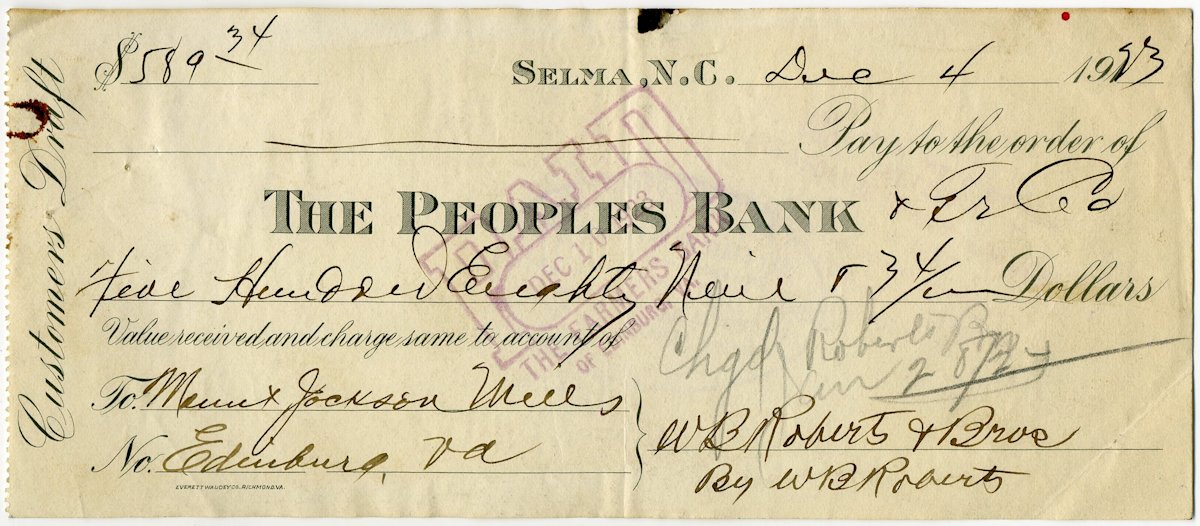 Customers Draft
$ 589 34
SELMA, N.C. Dec 4 1923
Pay to the order of
THE PEOPLES BANK & Tr Co
Five Hundred Eughty Nine & 34/ Dollars
Value received and charge same to account of
PAID
DEC 10 1923
THE FARMERS BANK
OF EDINBURG, VA.
Chgd Roberts Bros
Jan 28/24
To. Mount Jackson Mills
No. Edinburg, Va
W B Roberts & Bros
By W B Roberts
EVERETT WADDEY CO. RICHMOND, VA.